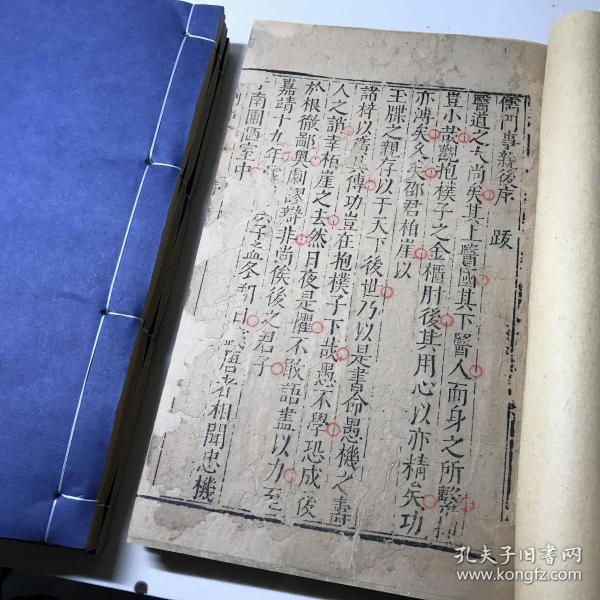 儒門事親後序 跋
醫道之大尚矣其上醫國其下醫人而身之所繫
豈小哉觀抱樸子之金櫃肘後其用心以亦精矣功
亦溥矣久矣邵君柏崖以
王牒之親存以于天下後世乃以是書命愚機之壽
諸梓以廣其傳功豈在抱樸子下哉愚不學恐成後
人之誚幸柏崖之去然日夜是懼不敢語盡以力至
於根徹鄙興劇謬辯非尚俟後之君子
嘉靖十九年 孟冬朔日 者相聞忠機
南園陋室中
孔夫子旧書网
www.kongfz.com